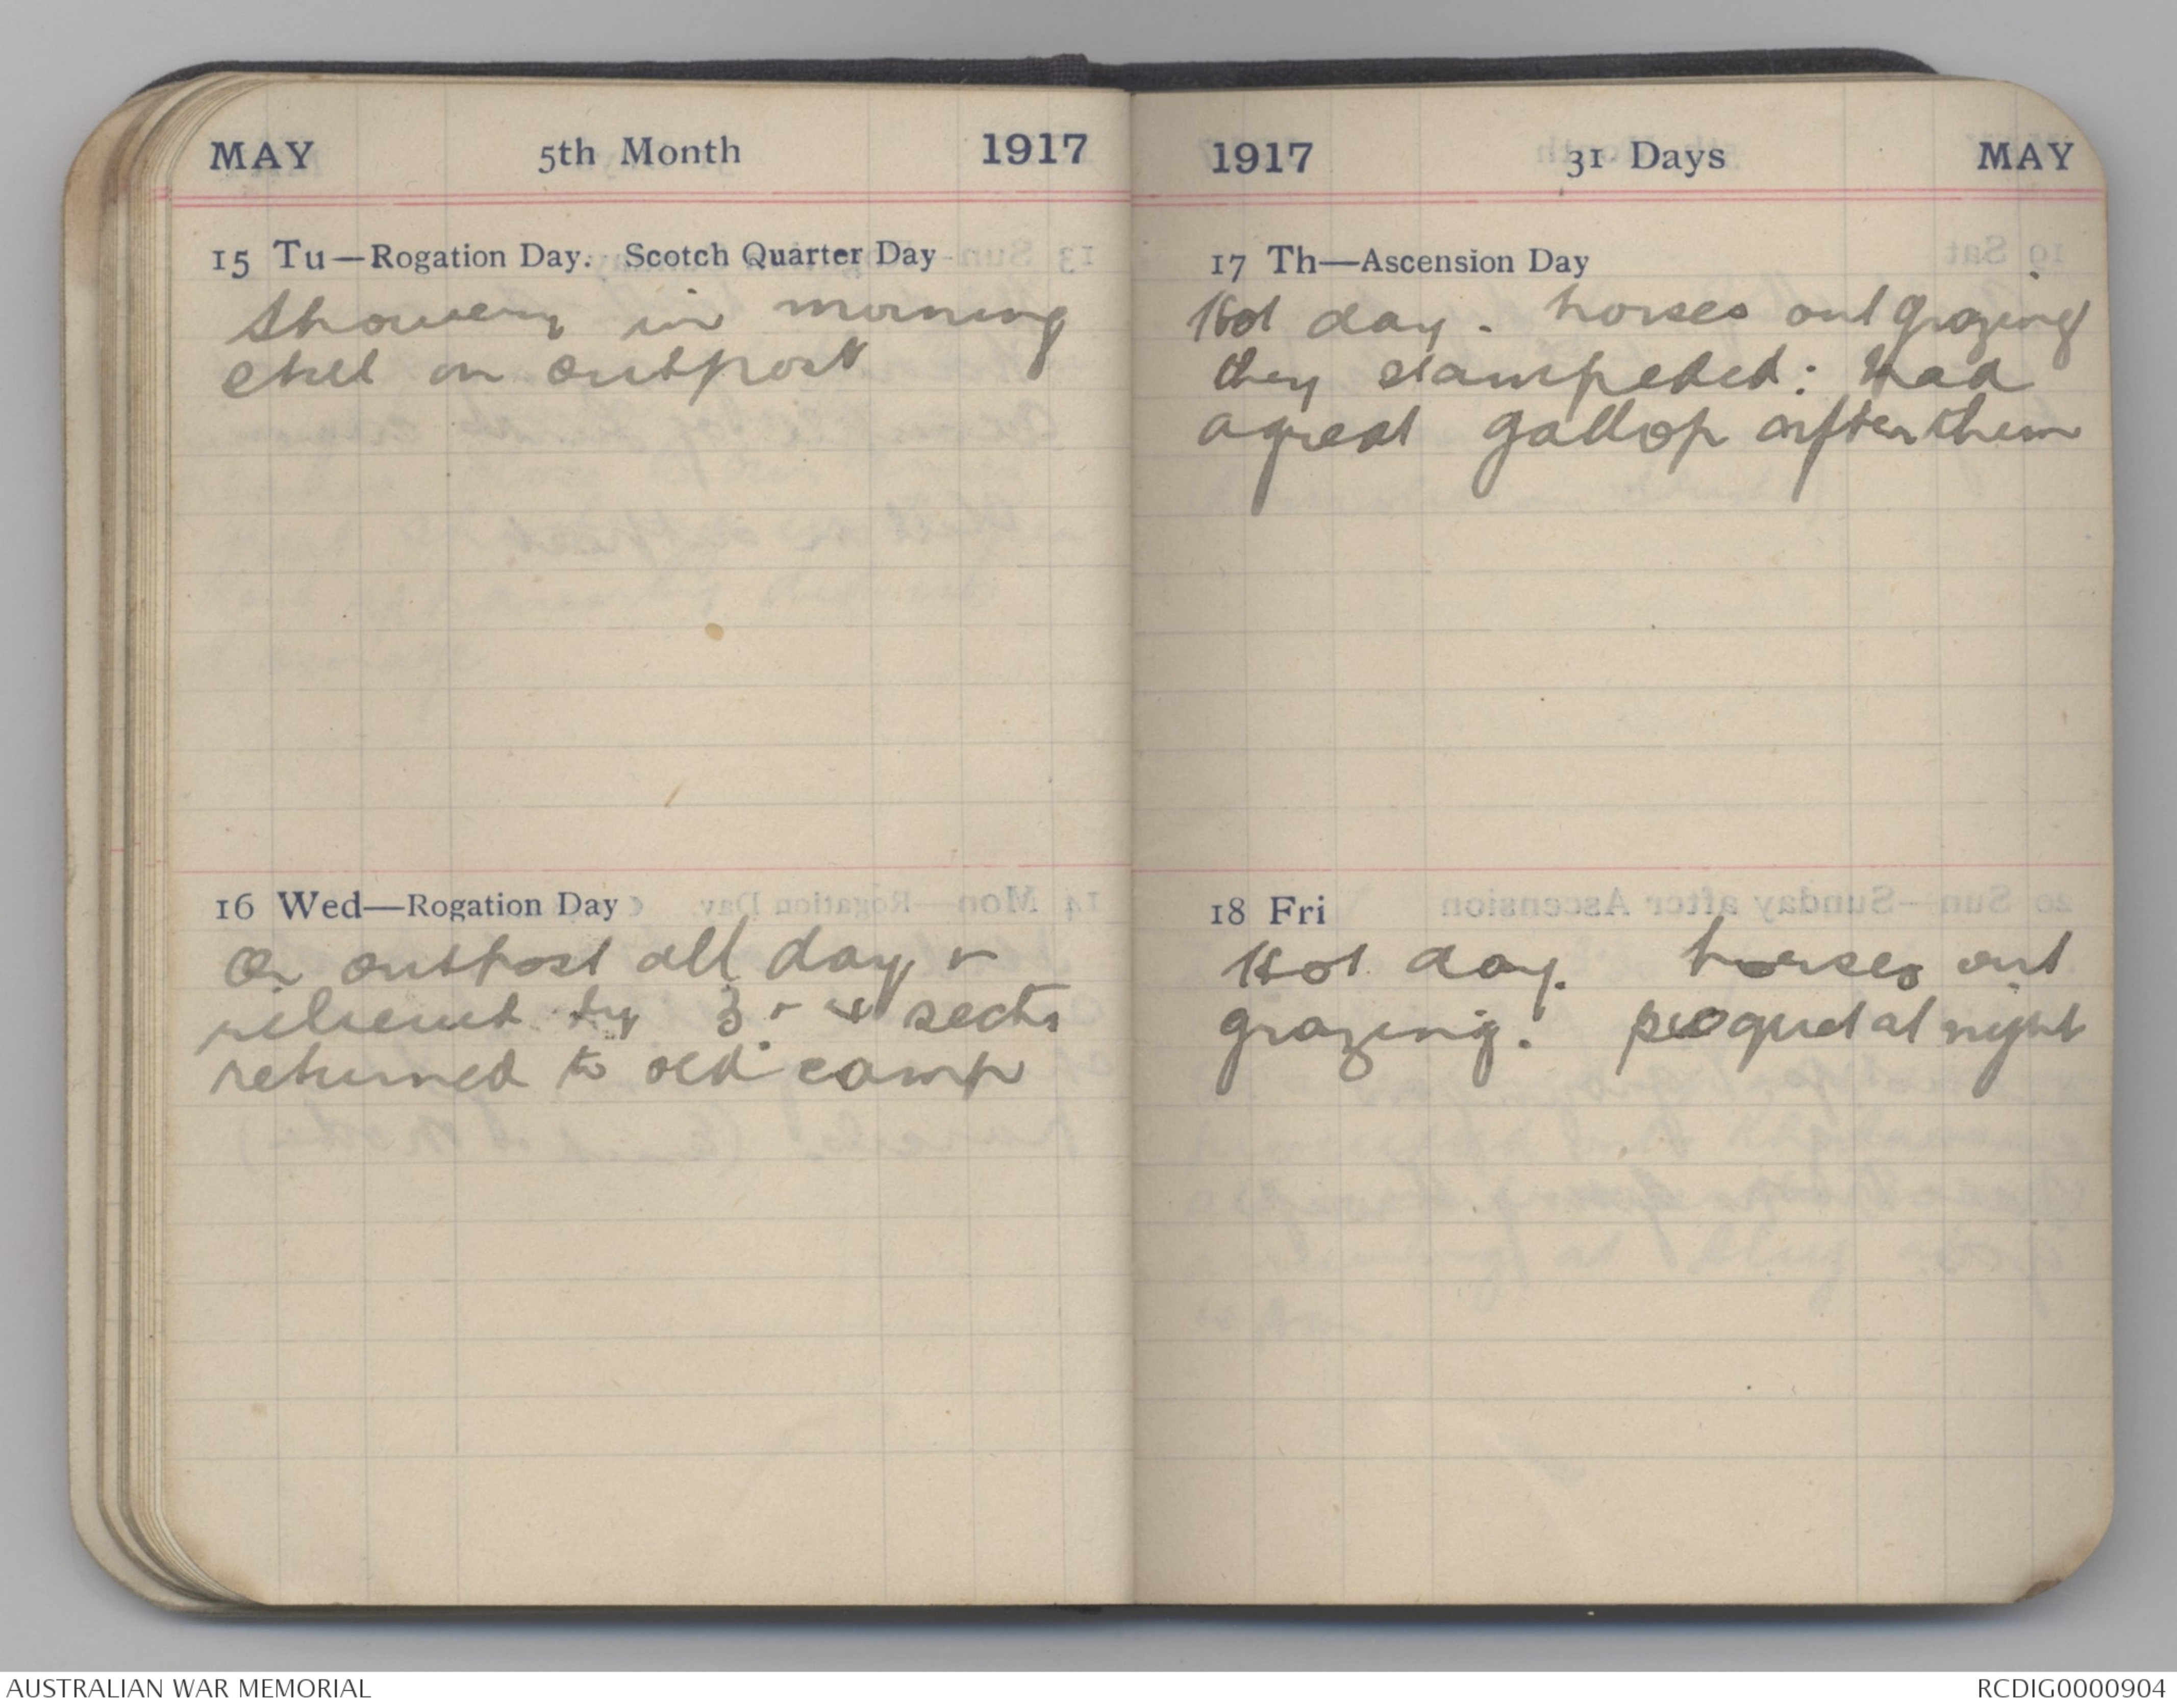 MAY 5th Month 1917
15 Tu—Rogation Day. Scotch Quarter Day
Showery in morning
still on outpost
16 Wed—Rogation Day
On outpost all day &
relieved by 3 & 4 sects
returned to old camp
1917 31 Days MAY
17 Th—Ascension Day
Hot day. horses out grazing
they stampeded: had
a great gallop after them
18 Fri
Hot day. horses out
grazing. picquet at night
AUSTRALIAN WAR MEMORIAL
RCDIG0000904